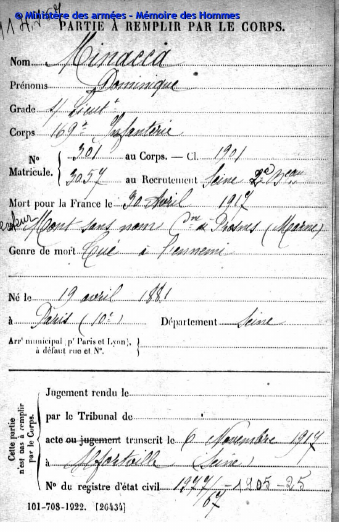 © Ministère des armées - Mémoire des Hommes
PARTIE À REMPLIR PAR LE CORPS.
Nom Minaccia
Prénoms Dominique
Grade s/ Lieutt
Corps 169e Infanterie
N° Matricule. { 301 au Corps. — Cl. 1901
3057 au Recrutement Seine 2e Beau
Mort pour la France le 30 Avril 1917
à Mont sans nom Con de Prosnes (Marne)
Genre de mort Tué à l'ennemi
Né le 19 avril 1881
à Paris (10e) Département Seine
Arrt municipal (pr Paris et Lyon), à défaut rue et N°.
Cette partie n'est pas à remplir par le Corps.
Jugement rendu le
par le Tribunal de
acte ou jugement transcrit le 6 Novembre 1917
à Alfortville (Seine)
N° du registre d'état civil 1277/67 - 1905-25
101-708-1922. [26434]